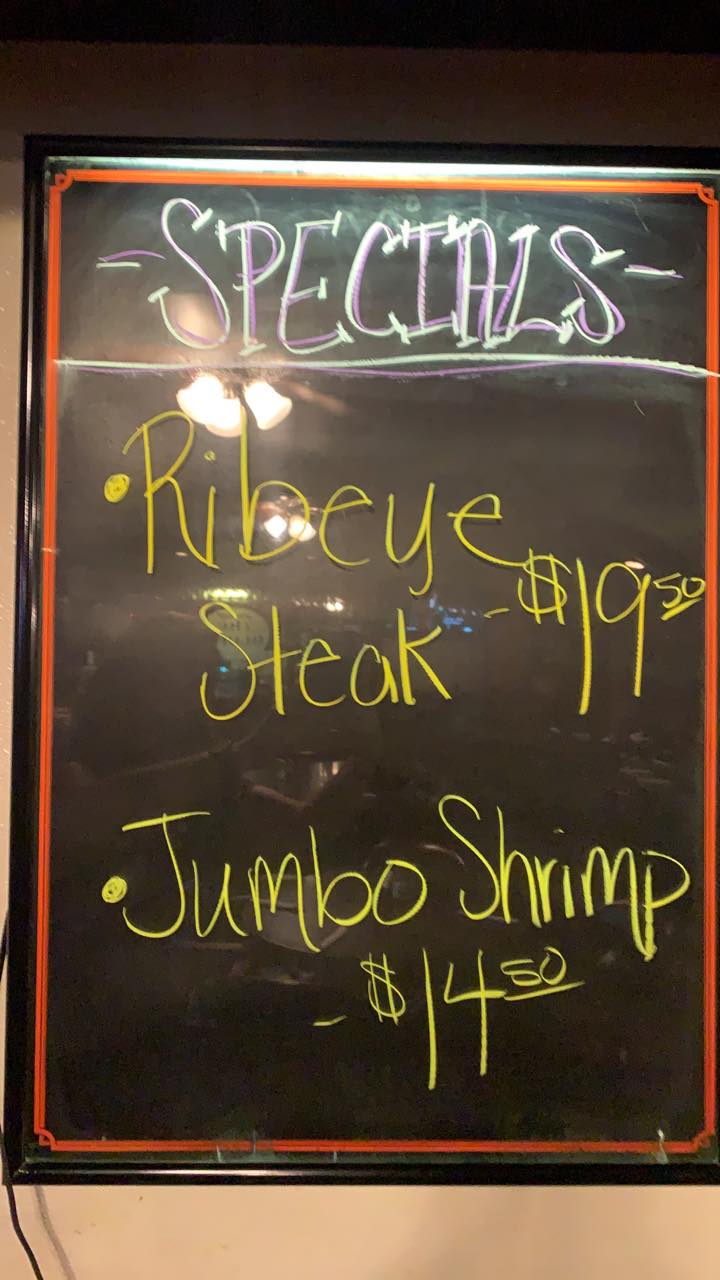 -SPECIALS-
•Ribeye
Steak -$19⁵⁰
•Jumbo Shrimp
-$14⁵⁰